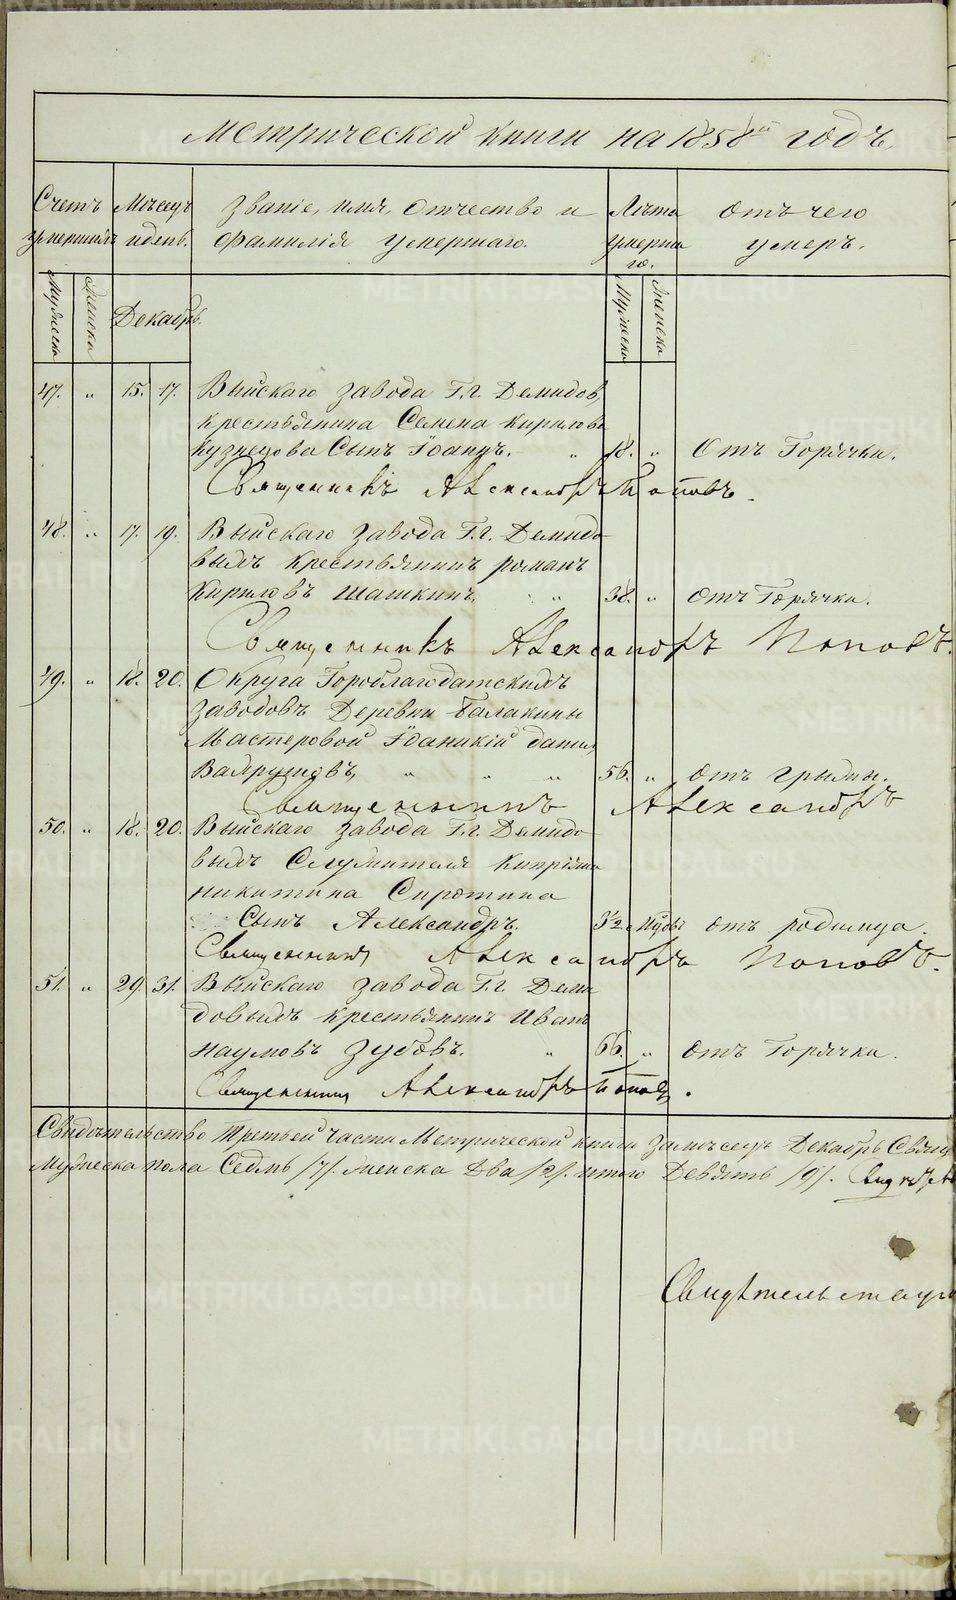 Метрической книги на 1858й годъ,
Счетъ умершихъ
Мѣсяцъ и день.
Званіе, имя, отчество и фамилія умершаго.
Лѣта умершаго.
Отъ чего умеръ.
Мужеска
Женска
Декабрь.
Мужеска
Женска
47. „ 15. 17. Выйскаго завода Г.г. Демидов,
крестьянина Семена Кирилова
Кузнецова Сынъ Іоаннъ. „ 18. „ Отъ Горячки.
Священникъ Александръ Поповъ.
48. „ 17. 19. Выйскаго завода Г.г. Демидо
выхъ крестьянинъ романъ
Кириловъ Шашкинъ. „ 38. „ Отъ Горячки.
Священникъ Александръ Поповъ.
49. „ 18. 20. Округа Гороблагодатскихъ
заводовъ Деревни Балакины
Мастеровой
„ „ „ 56. „ Отъ грыжи.
Священникъ Александръ
50. „ 18. 20. Выйскаго завода Г.г. Демидо
выхъ Служителя
никитина Сиротина
Сынъ Александръ. отъ родимца.
Священникъ Александръ Поповъ.
51. „ 29. 31. Выйскаго завода Г.г. Деми
довыхъ крестьянинъ Иванъ
Наумовъ Зубовъ. „ 66. „ Отъ Горячки.
Священникъ Александръ Поповъ.
Свидѣтельство Третьей части Метрической книги за мѣсяцъ Декабрь
Мужеска пола Седмь /7/. женска Два /2/. итого Девять /9/.
METRIKI.GASO-URAL.RU